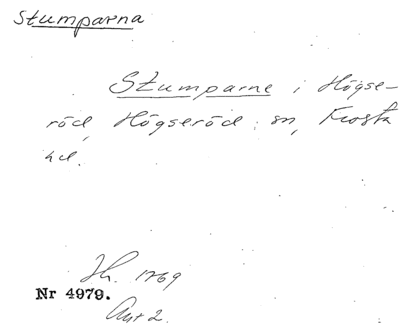 Stumparna
Stumparne i Högse-
röd, Högseröd sn, Frosta
hd.
Jh. 1769
Nr 4979.
Akt 2.